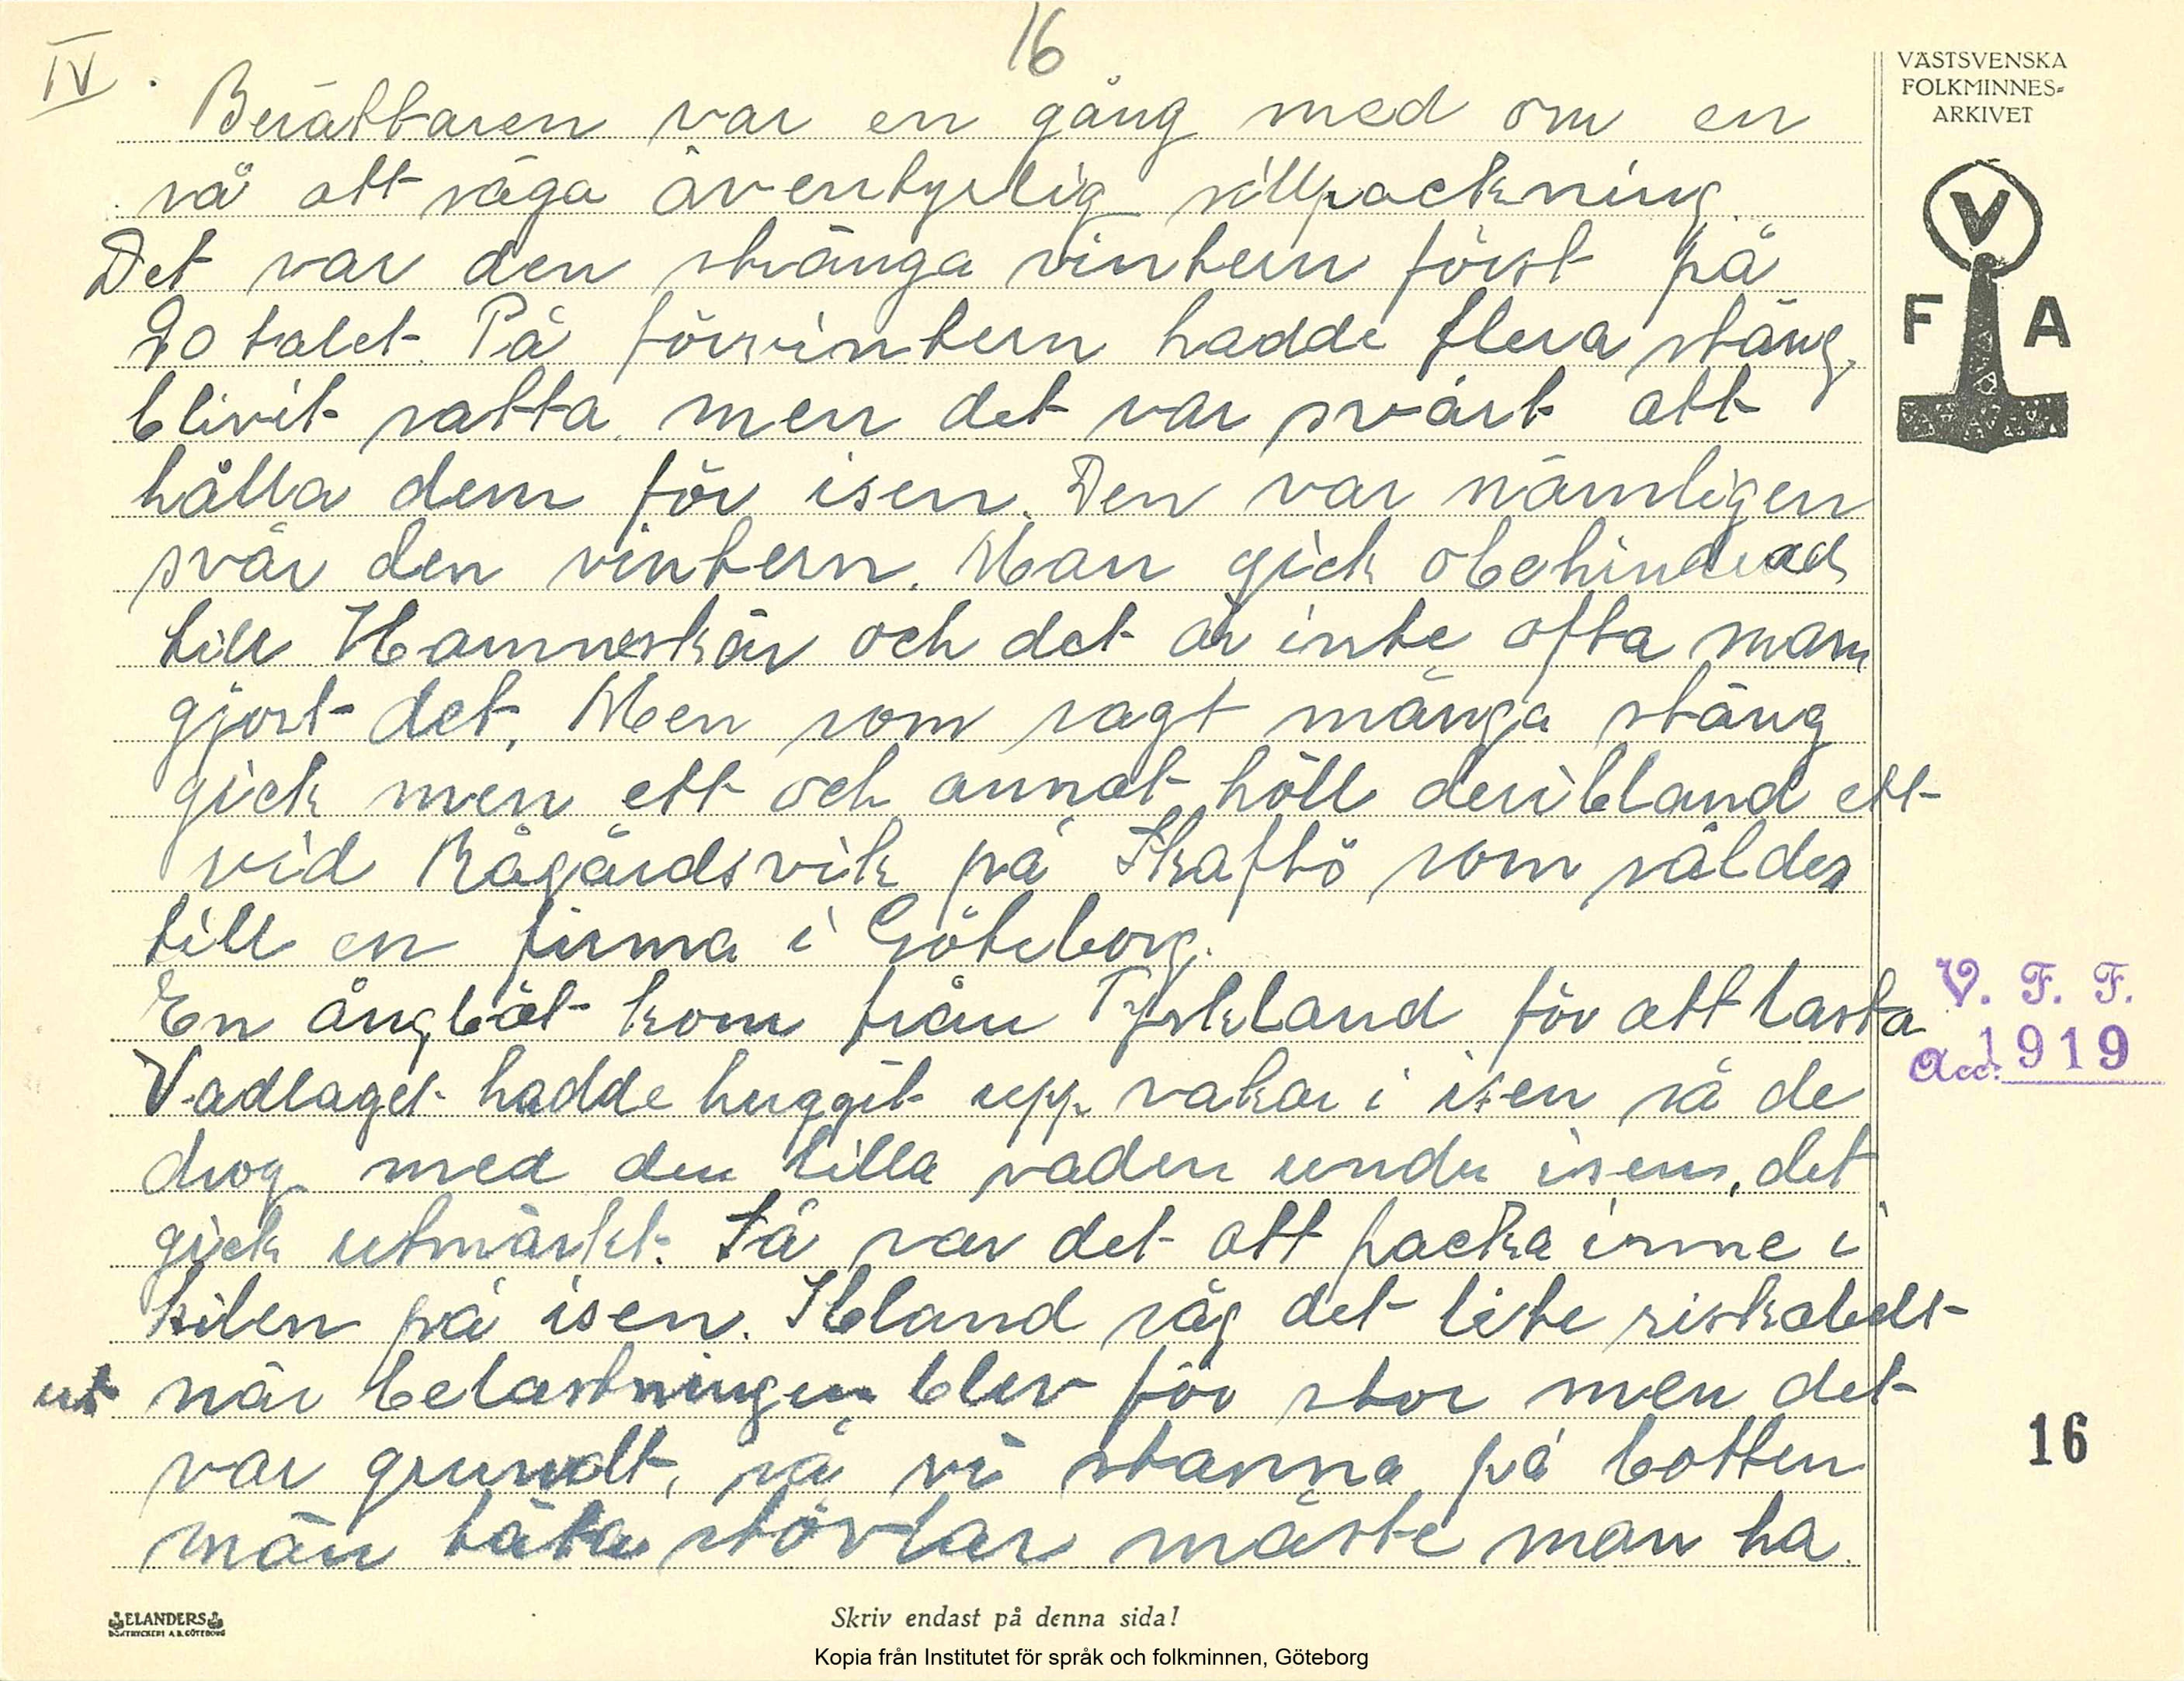 16
IV.
Berättaren var en gång med om en
så att säga äventyrlig sillpackning.
Det var den stränga vintern först på
90 talet. På förvintern hadde flera stäng
blivit satta, men det var svårt att
hålla dem för isen. Den var nämligen
svår den vintern. Man gick obehindrad
till Hamneskär och det är inte ofta man
gjort det. Men som sagt många stäng
gick men ett och annat höll deribland ett
vid Rågårdsvik på Skaftö som såldes
till en firma i Göteborg.
En ångbåt kom från Tyskland för att lasta
Vadlaget hadde huggit upp vakar i isen så de
drog med den lilla vaden under isen, det
gick utmärkt. Så var det att packa inne i
kilen på isen. Ibland såg det lite riskabelt
ut när belastningen blev för stor men det
var grundt, så vi stanna på botten
män täta stövlar måste man ha.
VÄSTSVENSKA
FOLKMINNES-
ARKIVET
V
F A
V. F. F.
Acc. 1919
16
ELANDERS
BOKTRYCKERI A.B. GÖTEBORG
Skriv endast på denna sida!
Kopia från Institutet för språk och folkminnen, Göteborg